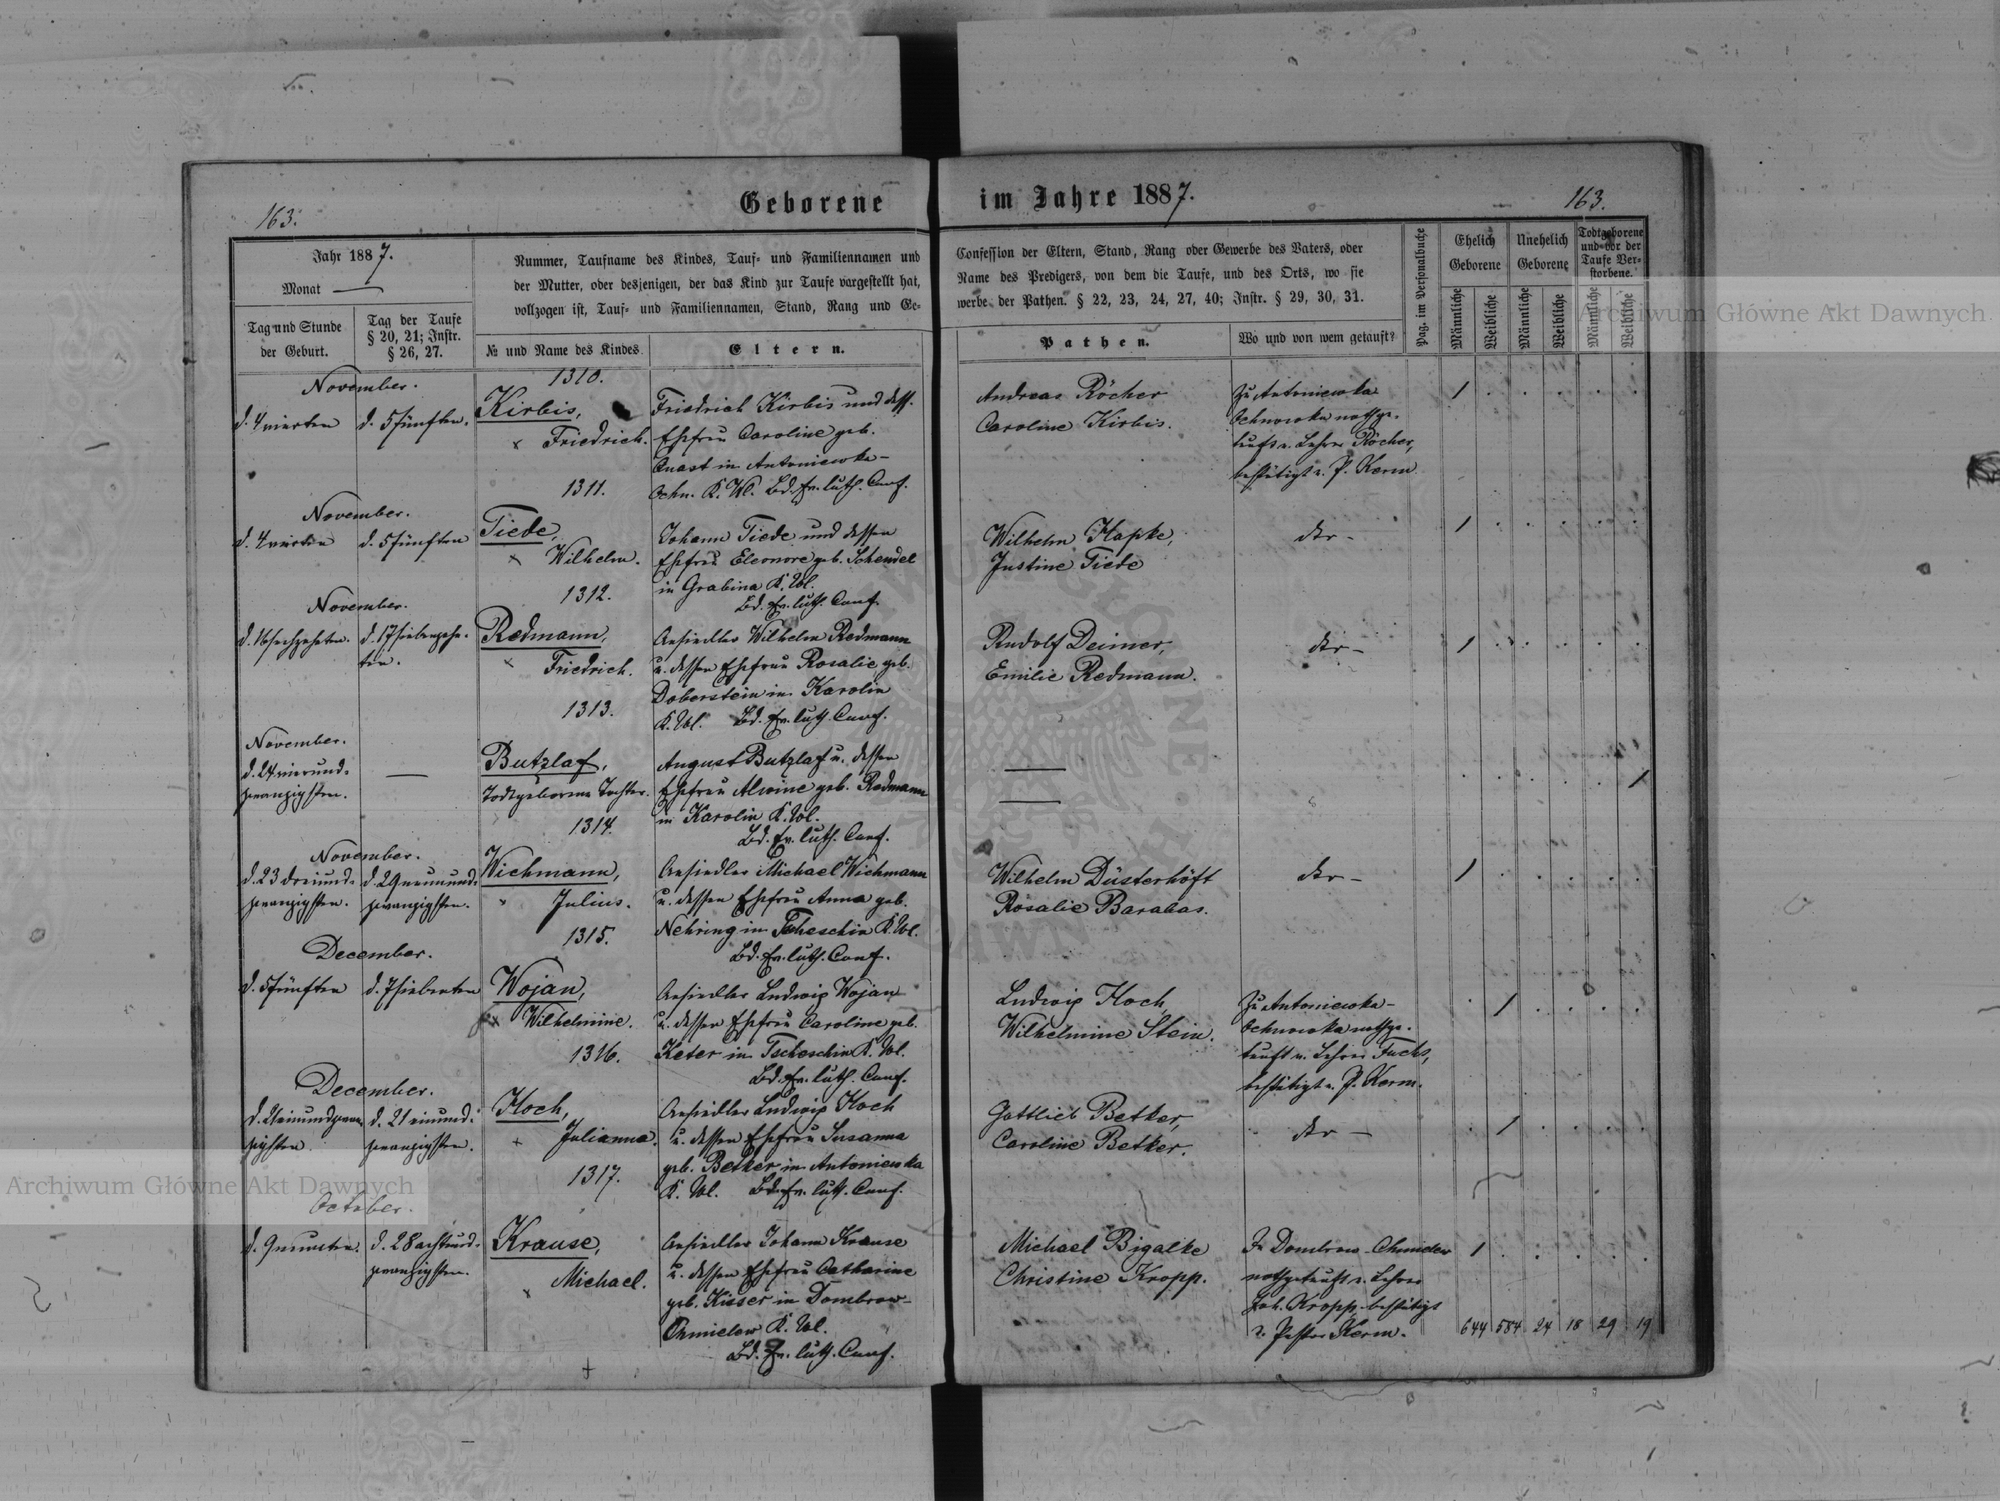 Geborene im Jahre 1887.
163.
163.
Jahr 1887.
Monat
Tag und Stunde
der Geburt.
Tag der Taufe
§ 20, 21; Instr.
§ 26, 27.
Nummer, Taufname des Kindes, Tauf- und Familiennamen und
der Mutter, oder desjenigen, der das Kind zur Taufe vorgestellt hat,
vollzogen ist, Tauf- und Familiennamen, Stand, Rang und Ge-
№ und Name des Kindes.
Eltern.
Confession der Eltern, Stand, Rang oder Gewerbe des Vaters, oder
Name des Predigers, von dem die Taufe, und des Orts, wo sie
werbe der Pathen. § 22, 23, 24, 27, 40; Instr. § 29, 30, 31.
Pathen.
Wo und von wem getauft?
Pag. im Personalbuche
Ehelich
Geborene
Unehelich
Geborene
Todtgeborene
und vor der
Taufe Ver-
storbene.
Männliche
Weibliche
Männliche
Weibliche
Männliche
Weibliche
Archiwum Główne Akt Dawnych
November.
d. 4 vierten
d. 5 fünften.
1310.
Kirbis,
× Friedrich.
Friedrich Kirbis und dess.
Ehefrau Caroline geb.
Quast in Antoniewka-
Ochn. K. Wl. Bd. Ev. luth. Conf.
Andreas Röcher
Caroline Kirbis.
Zu Antoniewka
Ochnowka nothge-
tauft v. Lehrer Röcher,
bestätigt v. P. Kerm
1
November.
d. 4 vierten
d. 5 fünften
1311.
Tiede,
× Wilhelm.
Johann Tiede und dessen
Ehefrau Eleonore geb. Schendel
in Grabina K. Wl.
Bd. Ev. luth. Conf.
Wilhelm Hapke,
Justine Tiede
dto -
1
November.
d. 16 sechzehnten.
d. 17 siebenzehn-
ten.
1312.
Redmann,
× Friedrich.
Ansiedler Wilhelm Redmann
u. dessen Ehefrau Rosalie geb.
Doberstein in Karolin
K. Wl. Bd. Ev. luth. Conf.
Rudolf Deimer,
Emilie Redmann.
dto -
1
November.
d. 24 vierund-
zwanzigsten.
—
1313.
Butzlaf,
Todtgeborene Tochter.
August Butzlaf u. dessen
Ehefrau Alwine geb. Redmann
in Karolin K. Wl.
Bd. Ev. luth. Conf.
—
—
1
November.
d. 23 dreiund-
zwanzigsten.
d. 29 neunund-
zwanzigsten.
1314.
Wichmann,
× Julius.
Ansiedler Michael Wichmann
u. dessen Ehefrau Anna geb.
Nehring in Tscheschin K. Wl.
Bd. Ev. luth. Conf.
Wilhelm Düsterhöft
Rosalie Barabas.
dto -
1
December.
d. 5 fünften
d. 7 siebenten
1315.
Wojan,
× Wilhelmine.
Ansiedler Ludwig Wojan
u. dessen Ehefrau Caroline geb.
Keter in Tscheschin K. Wl.
Bd. Ev. luth. Conf.
Ludwig Koch,
Wilhelmine Stein.
Zu Antoniewka-
Ochnowka nothge-
tauft v. Lehrer Fuchs,
bestätigt v. P. Kerm.
1
December.
d. 21 einundzwan-
zigsten.
d. 21 einund-
zwanzigsten.
1316.
Koch,
+ Julianna.
Ansiedler Ludwig Koch
u. dessen Ehefrau Susanna
geb. Betker in Antoniewka
K. Wl. Bd. Ev. luth. Conf.
Gottlieb Betker,
Caroline Betker.
dto -
1
October.
d. 9 neunten.
d. 28 achtund-
zwanzigsten.
1317.
Krause,
× Michael.
Ansiedler Johann Krause
u. dessen Ehefrau Catharine
geb. Kisser in Dombrow-
Chmielow K. Wl.
Bd. Ev. luth. Conf.
Michael Bigalke
Christine Kropp.
In Dombrow-Chmielow
nothgetauft v. Lehrer
Joh. Kropp, bestätigt
v. Pastor Kerm.
1
644 584 24 18 29 19
Archiwum Główne Akt Dawnych